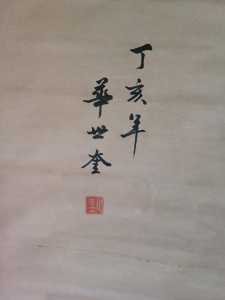 丁亥年
華世奎